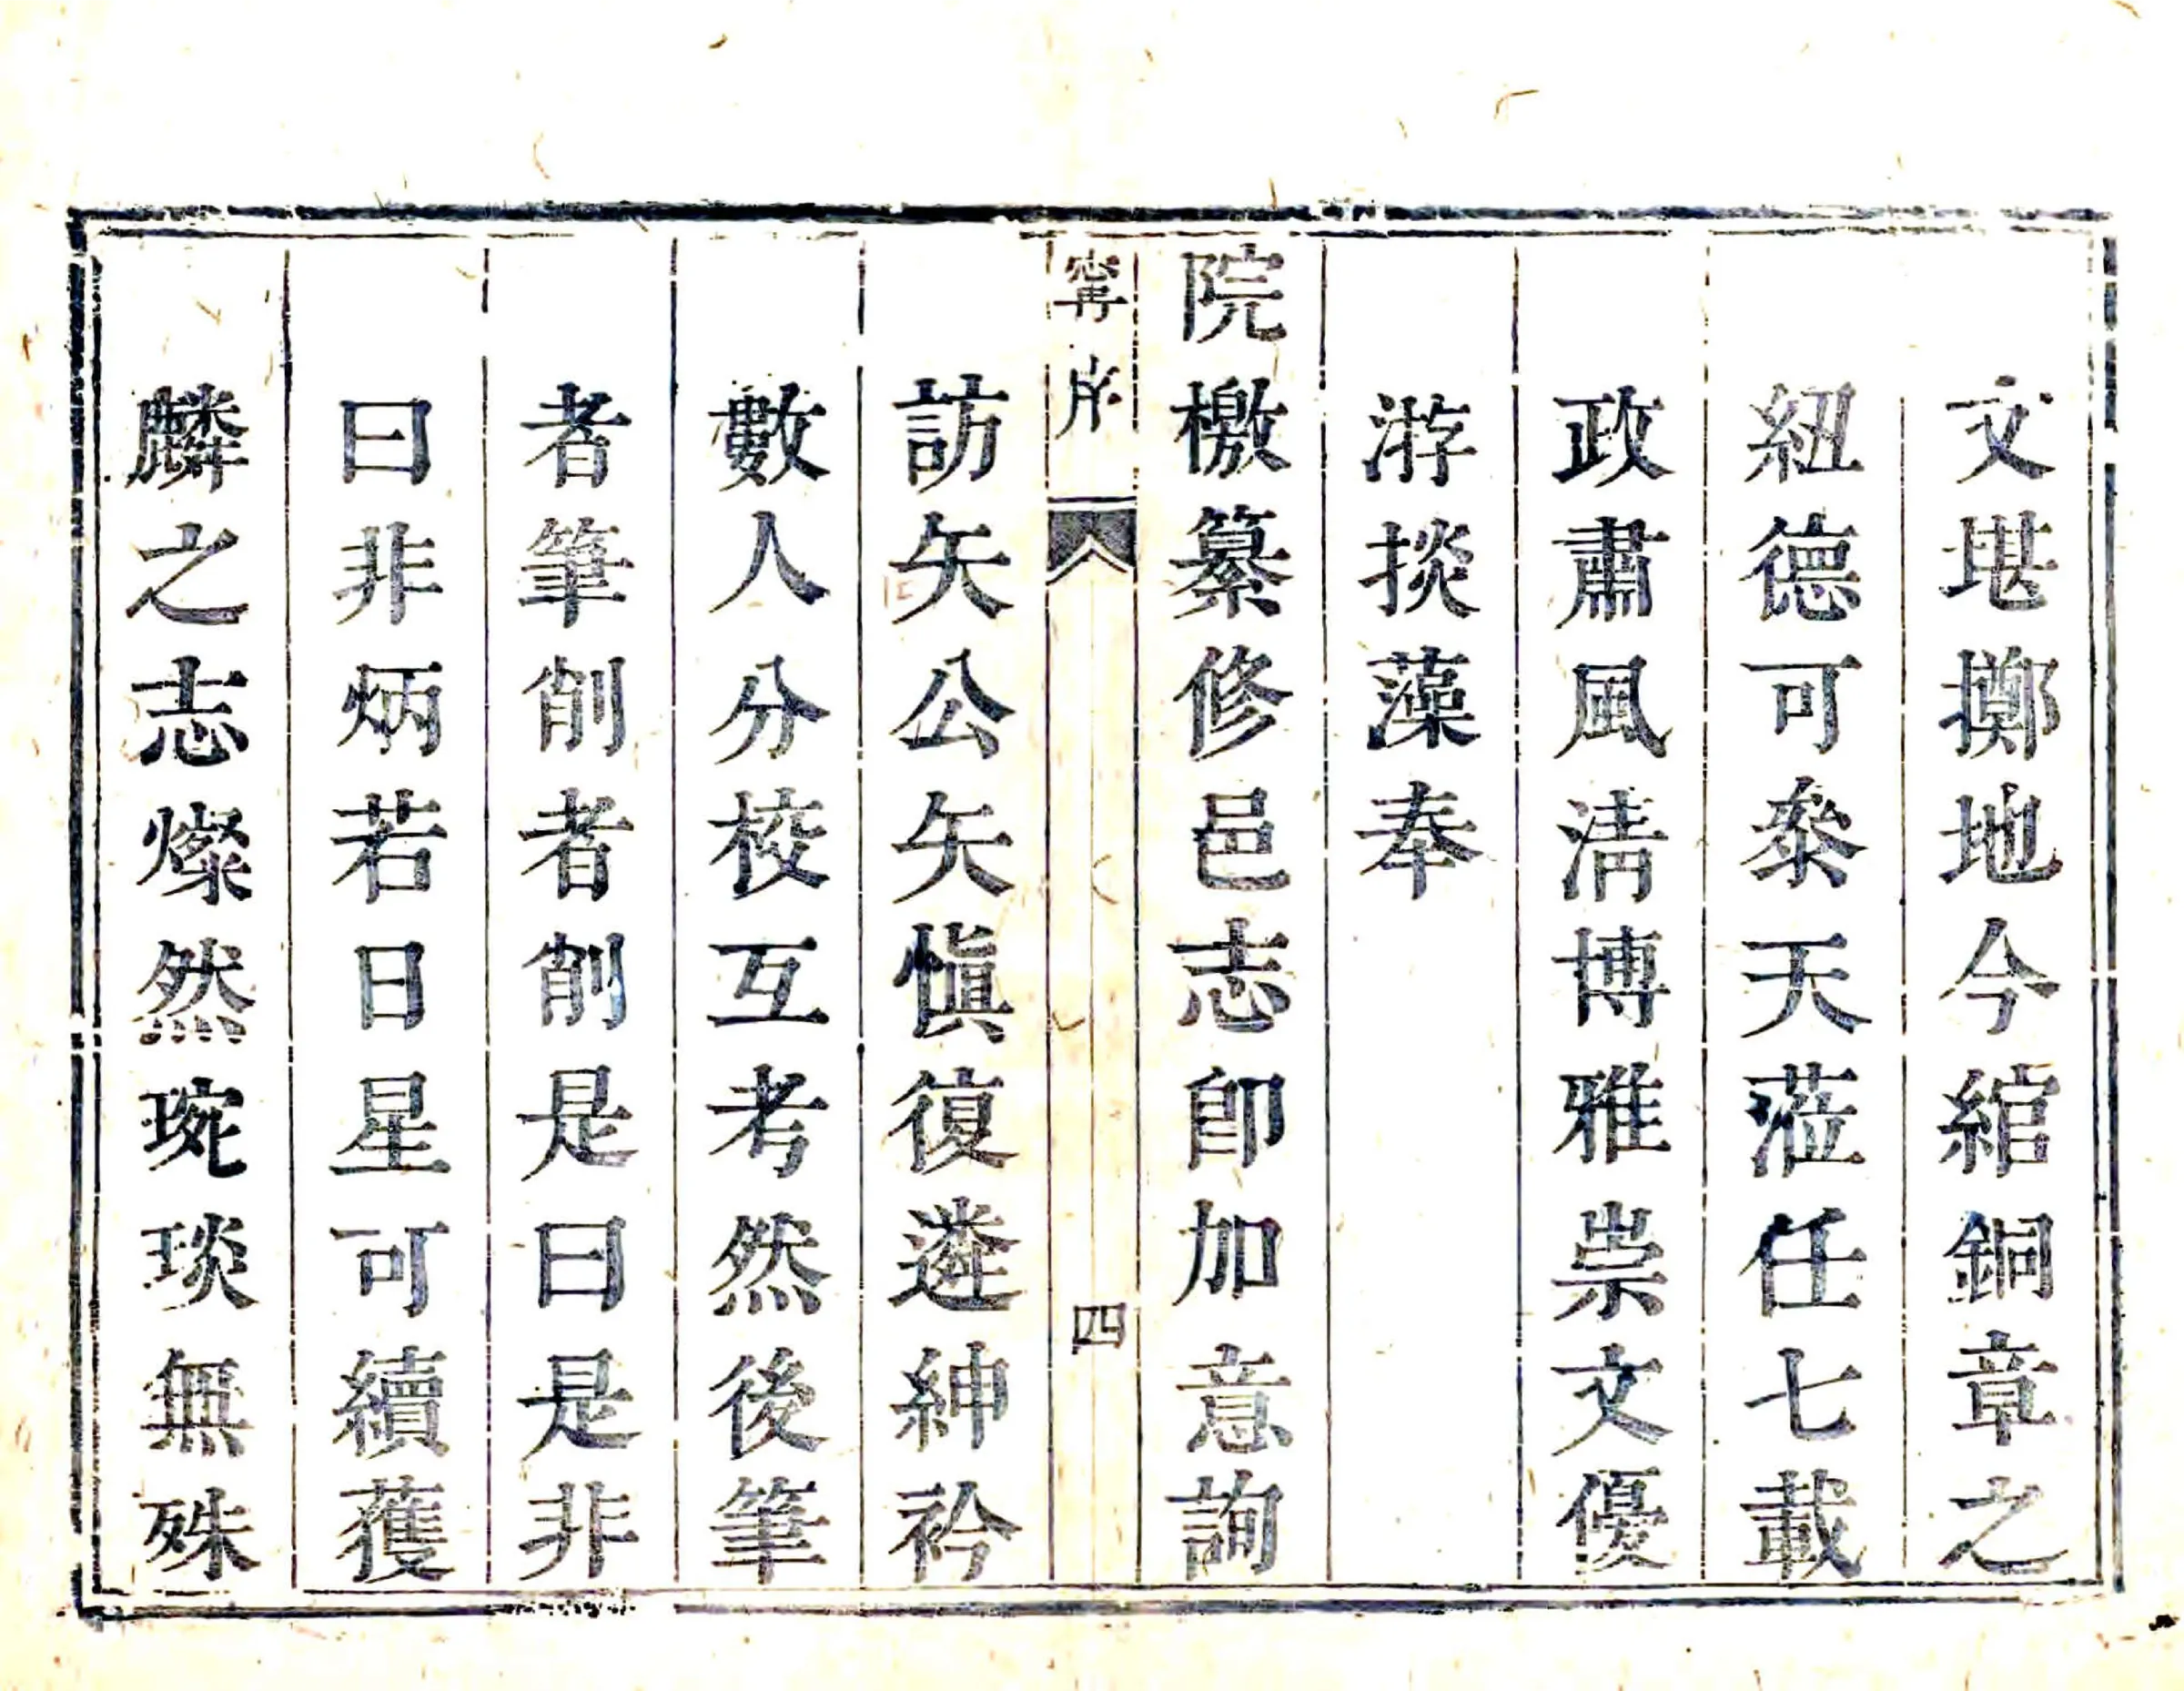 文堪擲地今綰銅章之
紐德可叅天蒞任七載
政肅風淸博雅崇文優
游掞藻奉
院檄纂修邑志卽加意詢
甯序
四
訪矢公矢愼復遴紳衿
數人分校互考然後筆
者筆削者削是曰是非
曰非炳若日星可續獲
麟之志燦然琬琰無殊